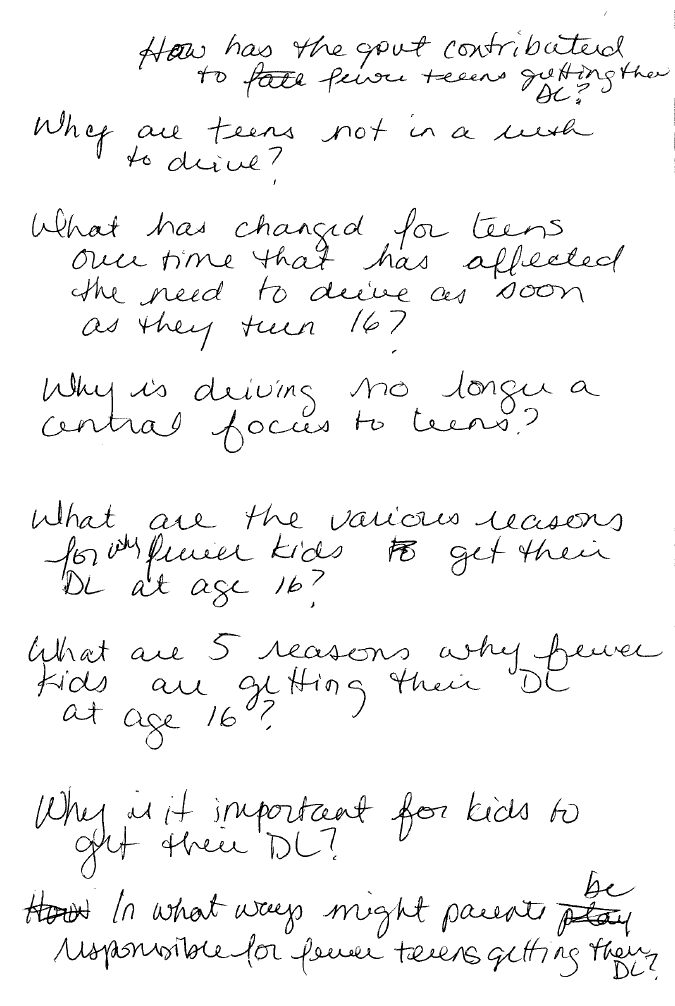 How has the govt contributed
to fewer teens getting their
DL?
Why are teens not in a rush
to drive?
What has changed for teens
over time that has affected
the need to drive as soon
as they turn 16?
Why is driving no longer a
central focus to teens?
What are the various reasons
for why fewer kids to get their
DL at age 16?
What are 5 reasons why fewer
kids are getting their DL
at age 16?
Why is it important for kids to
get their DL?
How In what ways might parents play be
responsible for fewer teens getting their
DL?